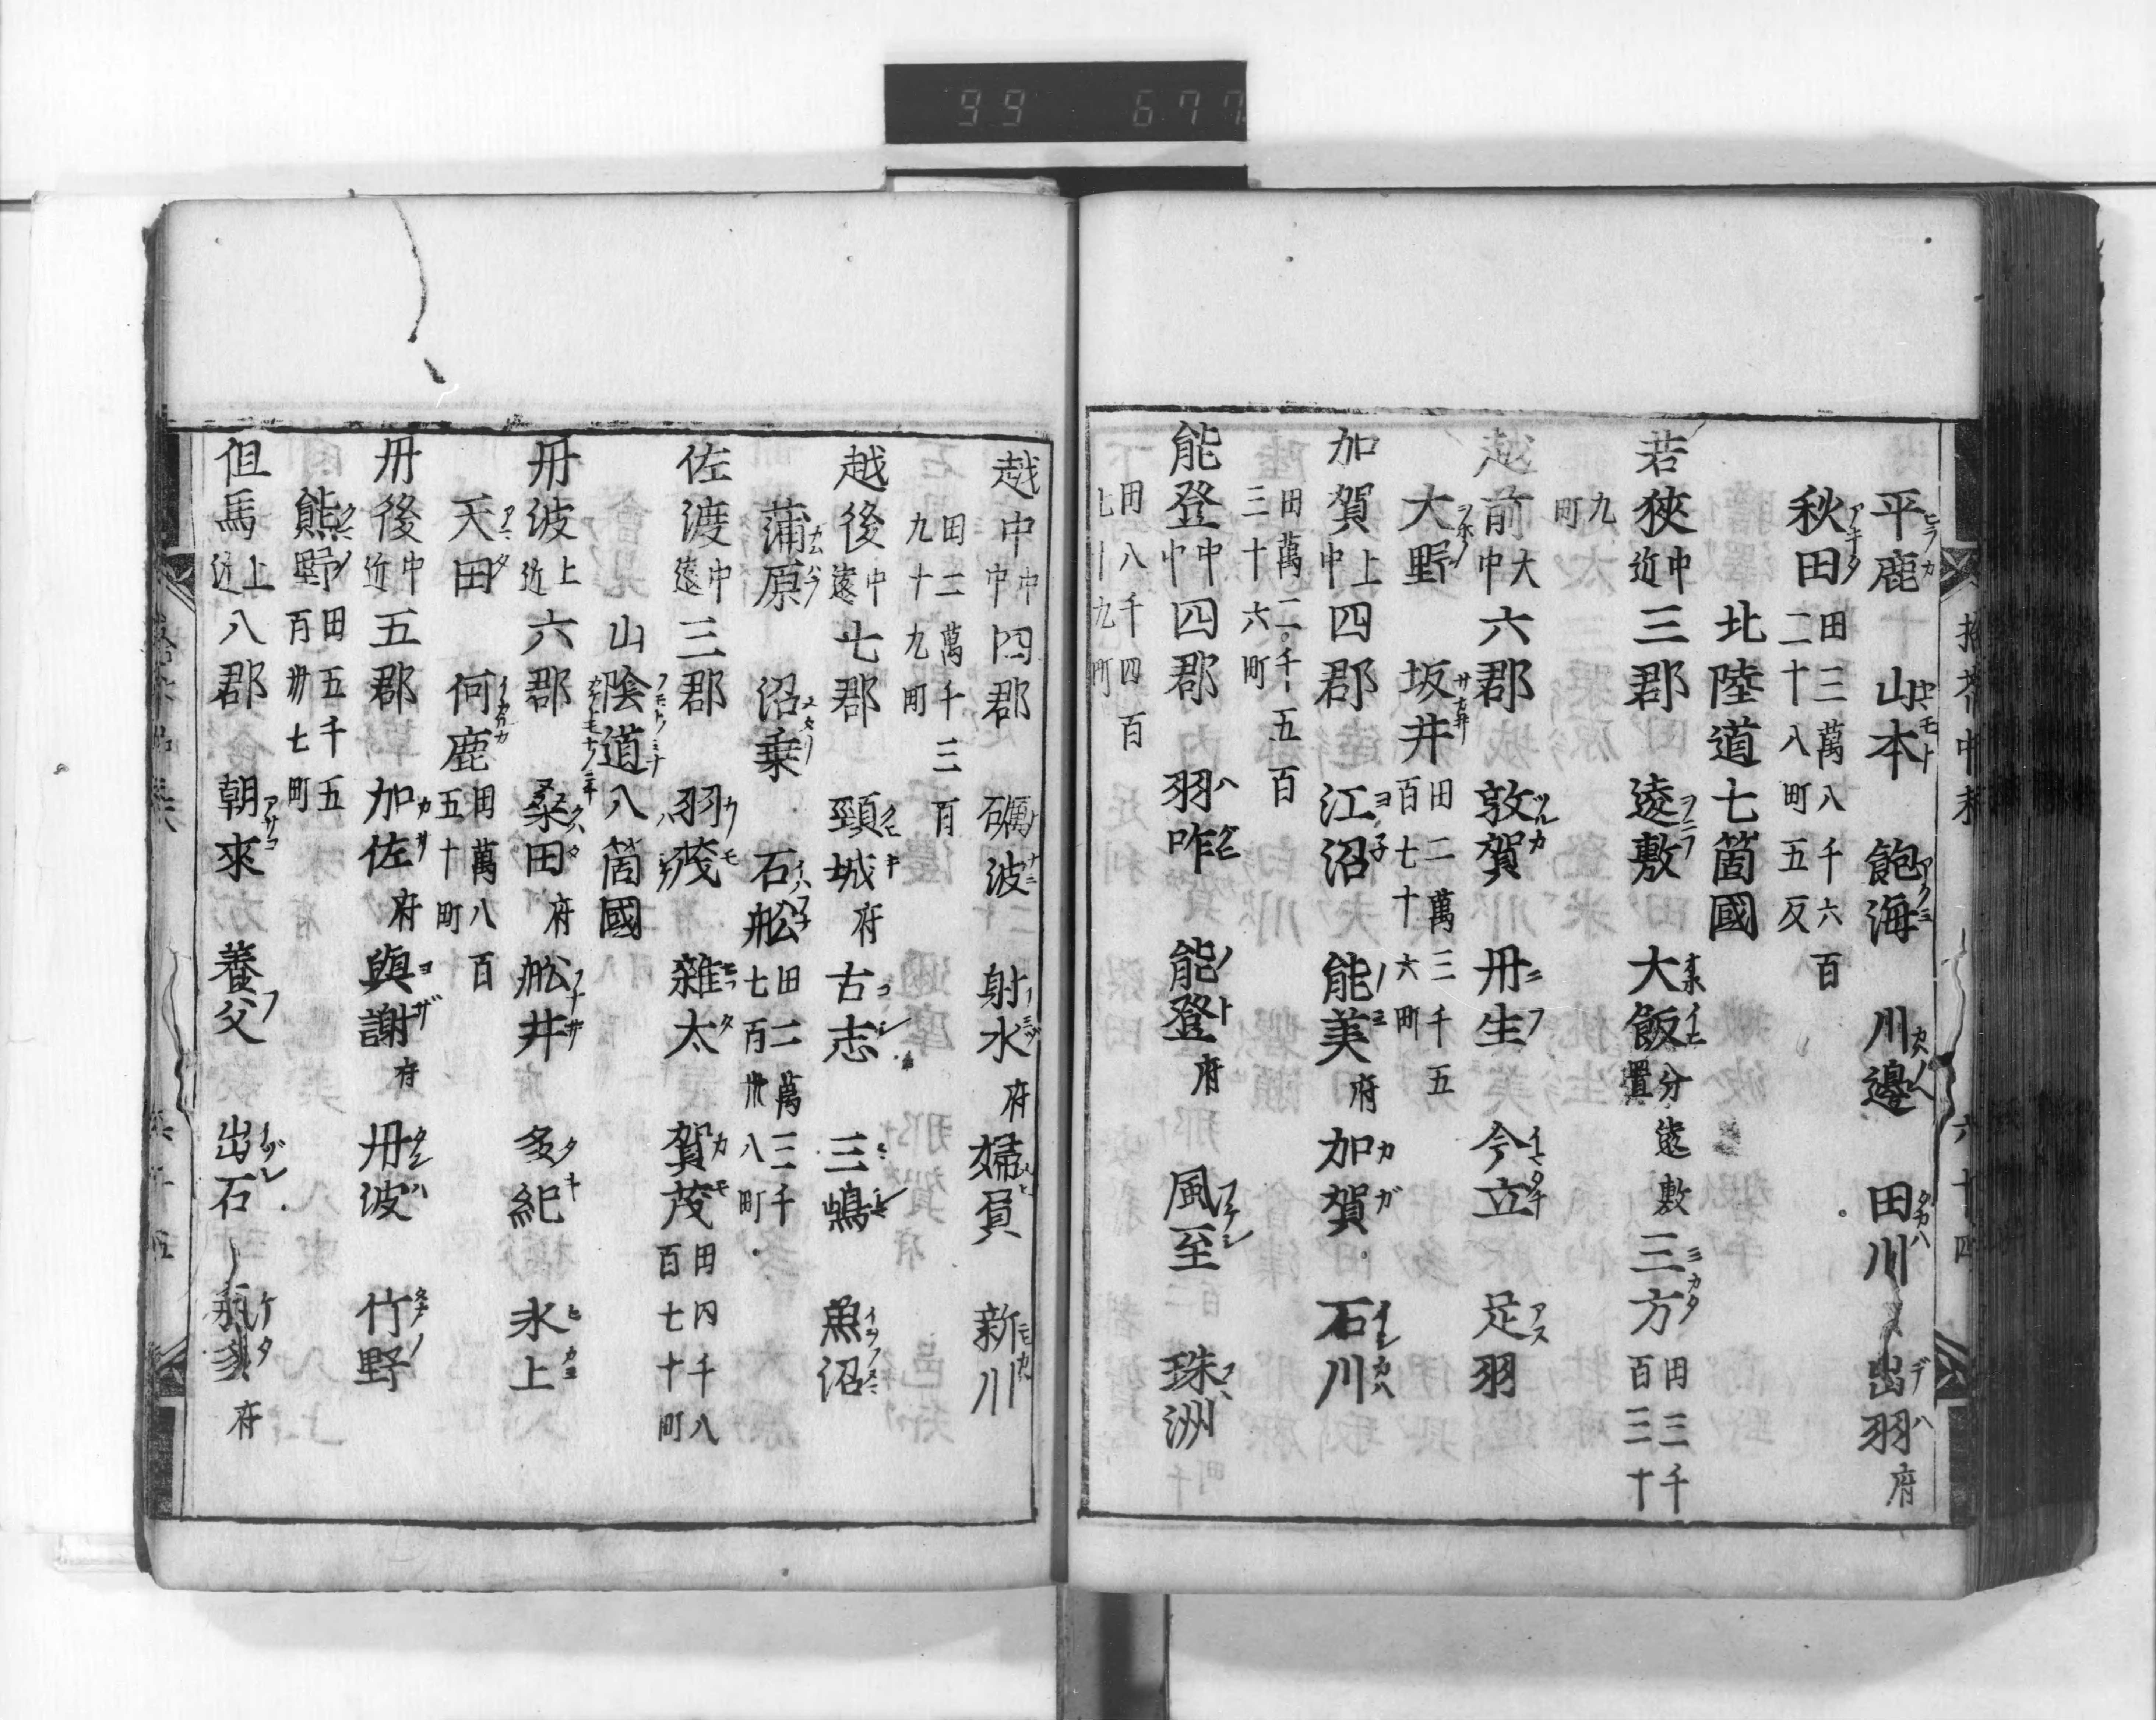 99 677
平鹿 山本 飽海 川邊 田川 出羽府
秋田 田三萬八千六百二十八町五反
北陸道七箇國
若狹中近 三郡 遠敷 大飯分遠敷置 三方 田三千百三十
九町
越前大中 六郡 敦賀 丹生 今立 足羽
大野 坂井 田二萬三千五百七十六町
加賀上中 四郡 江沼 能美府 加賀 石川
田萬二千五百三十六町
能登中中 四郡 羽咋 能登府 風至 珠洲
田八千四百七十九町
越中中中 四郡 礪波 射水府 婦負 新川
田二萬千三百九十九町
越後中遠 七郡 頸城府 古志 三嶋 魚沼
蒲原 沼乗 石舩 田二萬三千七百卅八町
佐渡中遠 三郡 羽茂 雜太 賀茂 田四千八百七十町
山陰道八箇國
丹波上近 六郡 桑田府 舩井 多紀 氷上
天田 何鹿 田萬八百五十町
丹後中近 五郡 加佐府 與謝府 丹波 竹野
熊野 田五千五百卅七町
但馬上近 八郡 朝來 養父 出石 氣多府